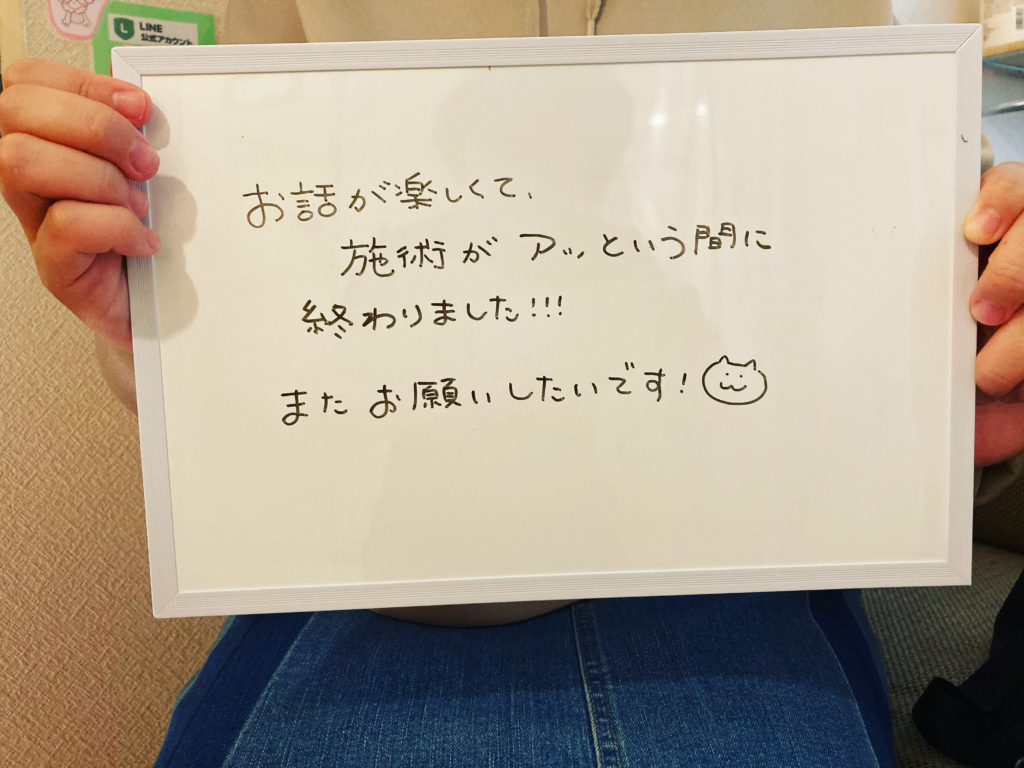 LINE
公式アカウント
お話が楽しくて、
施術が アッという間に
終わりました!!!
また お願いしたいです!